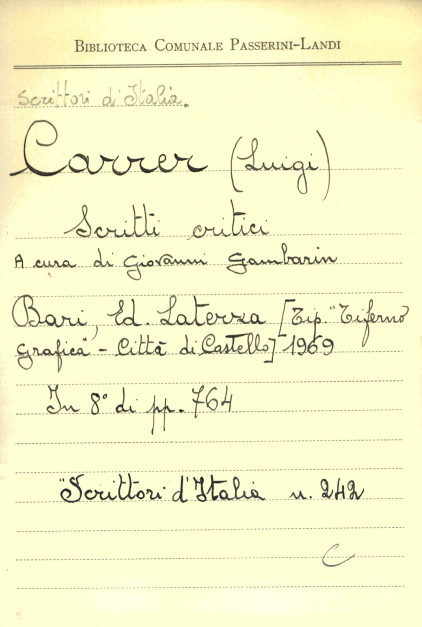 BIBLIOTECA COMUNALE PASSERINI-LANDI
Scrittori d'Italia.
Carrer (Luigi)
Scritti critici
A cura di Giovanni Gambarin
Bari, Ed. Laterza [Tip. "Tiferno
Grafica" - Città di Castello] 1969
In 8° di pp. 764
"Scrittori d'Italia n. 242
C